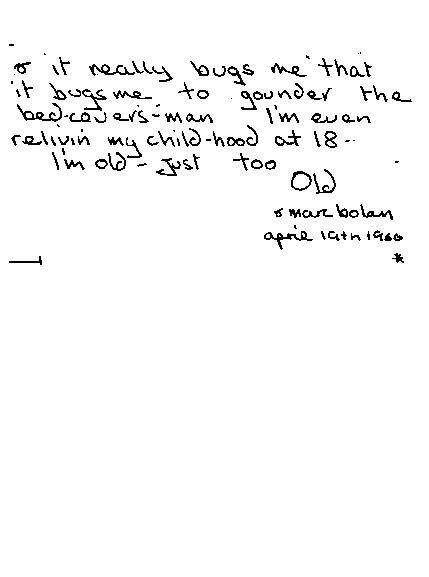 & it really bugs me that
it bugs me to go under the
bed-covers-man I'm even
relivin my child-hood at 18--
I'm old - just too
Old
marc bolan
april 19th 1966
*